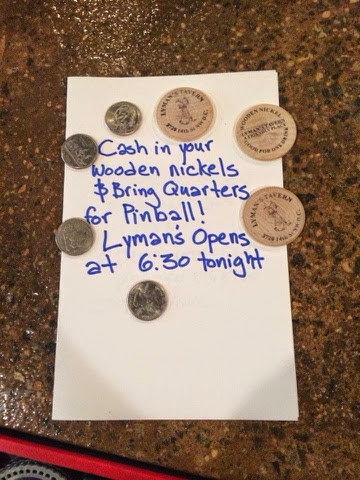 LYMAN'S TAVERN
3720 14th St NW D.C.
WOODEN NICKEL
LYMAN'S TAVERN
Cash in your
wooden nickels
& Bring Quarters
for Pinball!
Lyman's Opens
at 6:30 tonight
LYMAN'S TAVERN
3720 14th St NW D.C.